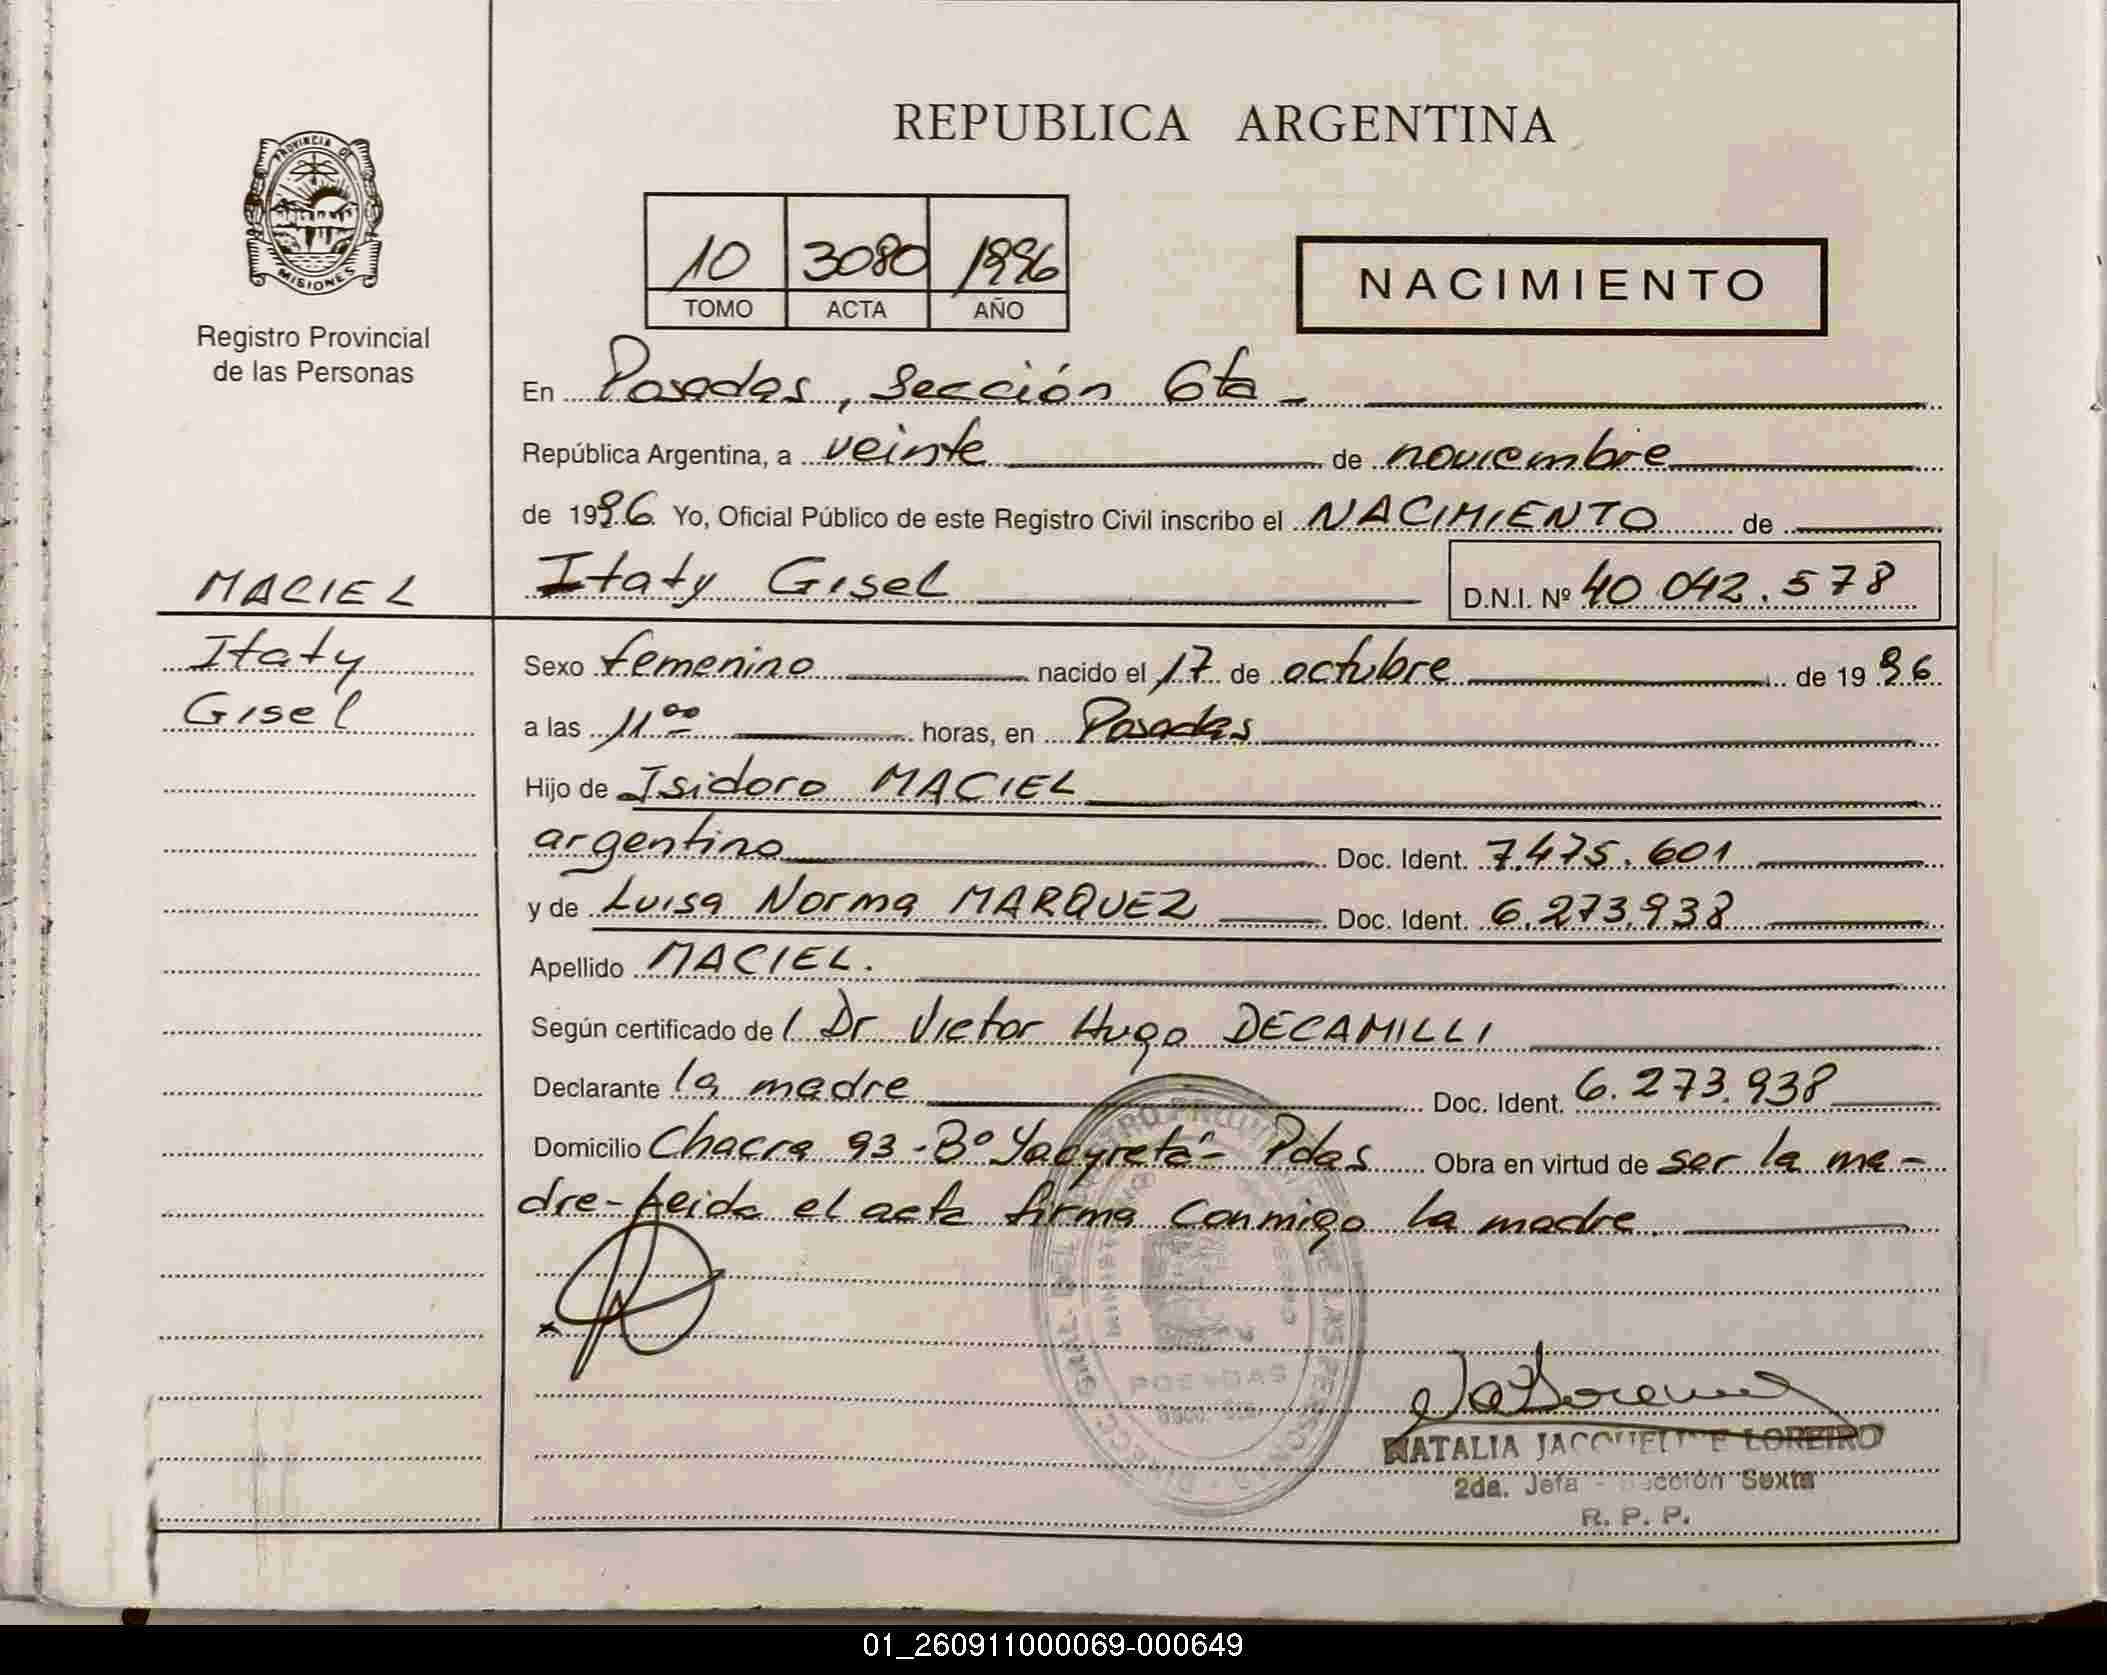 REPUBLICA ARGENTINA
PROVINCIA DE
MISIONES
Registro Provincial
de las Personas
10 3080 1996
TOMO ACTA AÑO
NACIMIENTO
En Posadas, Sección 6ta -
República Argentina, a veinte de noviembre
de 1996. Yo, Oficial Público de este Registro Civil inscribo el NACIMIENTO de
MACIEL
Itaty Gisel D.N.I. Nº 40.042.578
Itaty
Gisel
Sexo femenino nacido el 17 de octubre de 1996
a las 11°° horas, en Posadas
Hijo de Isidoro MACIEL
argentino Doc. Ident. 7.475.601
y de Luisa Norma MARQUEZ Doc. Ident. 6.273.938
Apellido MACIEL.
Según certificado de l Dr Victor Hugo DECAMILLI
Declarante la madre Doc. Ident. 6.273.938
Domicilio Chacra 93 - B° Yacyretá - Pdas Obra en virtud de ser la ma-
dre - Leida el acta firma conmigo la madre.
POSADAS
NATALIA JACQUELINE LOREIRO
2da. Jefa - Sección Sexta
R. P. P.
01_260911000069-000649